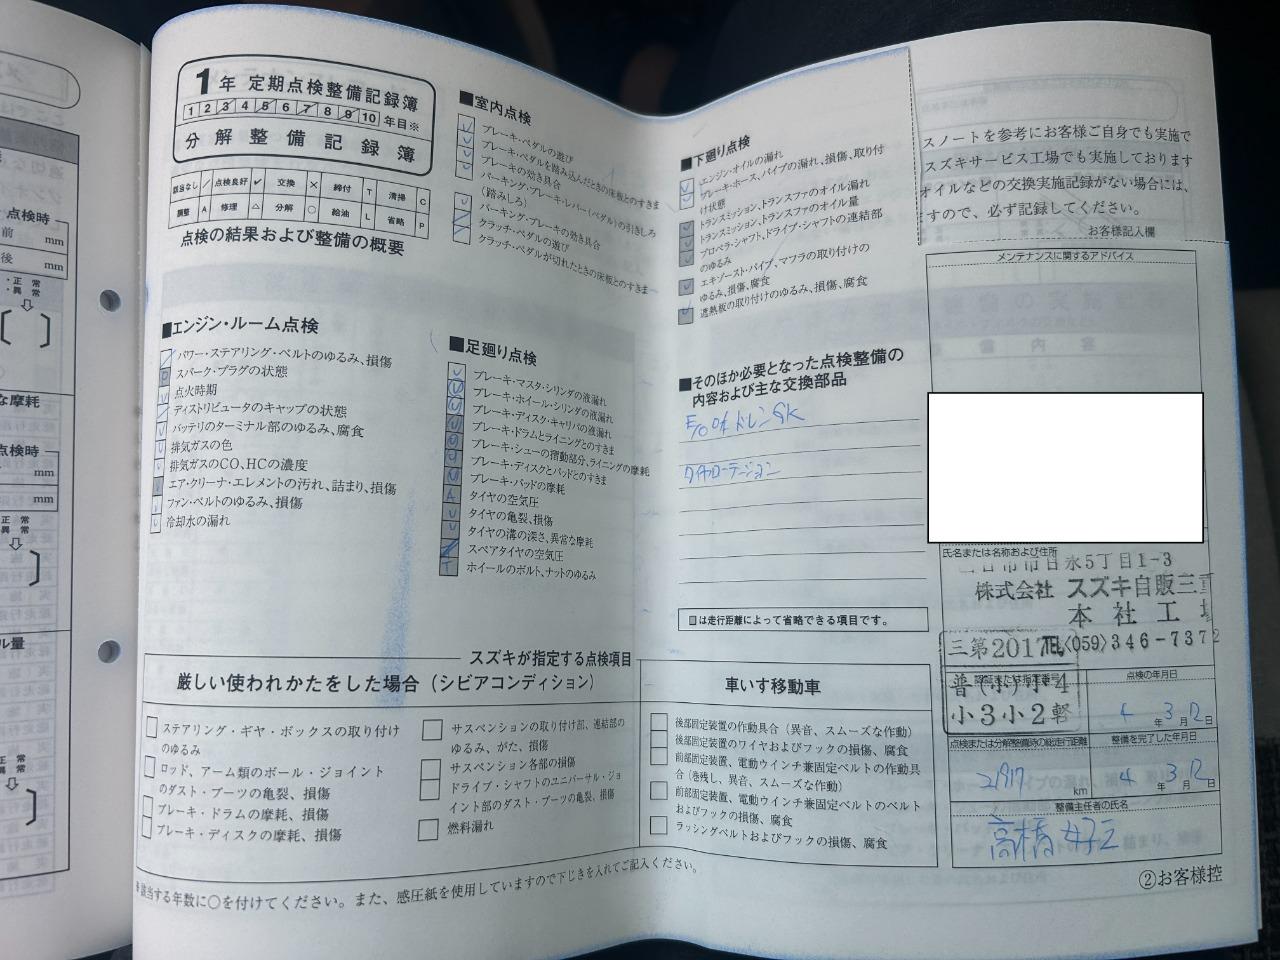 1年 定期点検整備記録簿
1 2 3 4 5 6 7 8 9 10 年目※
分解整備記録簿
該当なし ／ 点検良好 ✓ 交換 × 締付 T 清掃 C
調整 A 修理 △ 分解 ○ 給油 L 省略 P
点検の結果および整備の概要
■エンジン・ルーム点検
パワー・ステアリング・ベルトのゆるみ、損傷
スパーク・プラグの状態
点火時期
ディストリビュータのキャップの状態
バッテリのターミナル部のゆるみ、腐食
排気ガスの色
排気ガスのCO、HCの濃度
エア・クリーナ・エレメントの汚れ、詰まり、損傷
ファン・ベルトのゆるみ、損傷
冷却水の漏れ
■室内点検
ブレーキ・ペダルの遊び
ブレーキ・ペダルを踏み込んだときの床板とのすきま
ブレーキの効き具合
パーキング・ブレーキ・レバー(ペダル)の引きしろ
(踏みしろ)
パーキング・ブレーキの効き具合
クラッチ・ペダルの遊び
クラッチ・ペダルが切れたときの床板とのすきま
■足廻り点検
ブレーキ・マスタ・シリンダの液漏れ
ブレーキ・ホイール・シリンダの液漏れ
ブレーキ・ディスク・キャリパの液漏れ
ブレーキ・ドラムとライニングとのすきま
ブレーキ・シューの摺動部分、ライニングの摩耗
ブレーキ・ディスクとパッドとのすきま
ブレーキ・パッドの摩耗
タイヤの空気圧
タイヤの亀裂、損傷
タイヤの溝の深さ、異常な摩耗
スペアタイヤの空気圧
ホイールのボルト、ナットのゆるみ
■下廻り点検
エンジン・オイルの漏れ
ブレーキ・ホース、パイプの漏れ、損傷、取り付
け状態
トランスミッション、トランスファのオイル漏れ
トランスミッション、トランスファのオイル量
プロペラ・シャフト、ドライブ・シャフトの連結部
のゆるみ
エキゾースト・パイプ、マフラの取り付けの
ゆるみ、損傷、腐食
遮熱板の取り付けのゆるみ、損傷、腐食
■そのほか必要となった点検整備の
内容および主な交換部品
タイヤローテーション
は走行距離によって省略できる項目です。
スズキが指定する点検項目
厳しい使われかたをした場合(シビアコンディション)
ステアリング・ギヤ・ボックスの取り付け
のゆるみ
ロッド、アーム類のボール・ジョイント
のダスト・ブーツの亀裂、損傷
ブレーキ・ドラムの摩耗、損傷
ブレーキ・ディスクの摩耗、損傷
サスペンションの取り付け部、連結部の
ゆるみ、がた、損傷
サスペンション各部の損傷
ドライブ・シャフトのユニバーサル・ジョ
イント部のダスト・ブーツの亀裂、損傷
燃料漏れ
車いす移動車
後部固定装置の作動具合(異音、スムーズな作動)
後部固定装置のワイヤおよびフックの損傷、腐食
前部固定装置、電動ウインチ兼固定ベルトの作動具
合(巻残し、異音、スムーズな作動)
前部固定装置、電動ウインチ兼固定ベルトのベルト
およびフックの損傷、腐食
ラッシングベルトおよびフックの損傷、腐食
※該当する年数に○を付けてください。また、感圧紙を使用していますので下じきを入れてご記入ください。
スノートを参考にお客様ご自身でも実施で
スズキサービス工場でも実施しております
オイルなどの交換実施記録がない場合には、
すので、必ず記録してください。
お客様記入欄
メンテナンスに関するアドバイス
氏名または名称および住所
市日永5丁目1-3
株式会社 スズキ自販三重
本社工場
TEL〈059〉346-7372
三第2017
普(小)小4
小3小2軽
認証または指定番号
点検の年月日
4年3月12日
点検または分解整備時の総走行距離
21917 km
整備を完了した年月日
4年3月12日
整備主任者の氏名
②お客様控
点検時
前 mm
後 mm
・正常
・異常
な摩耗
点検時
mm
mm
正常
異常
ル量
正常
異常